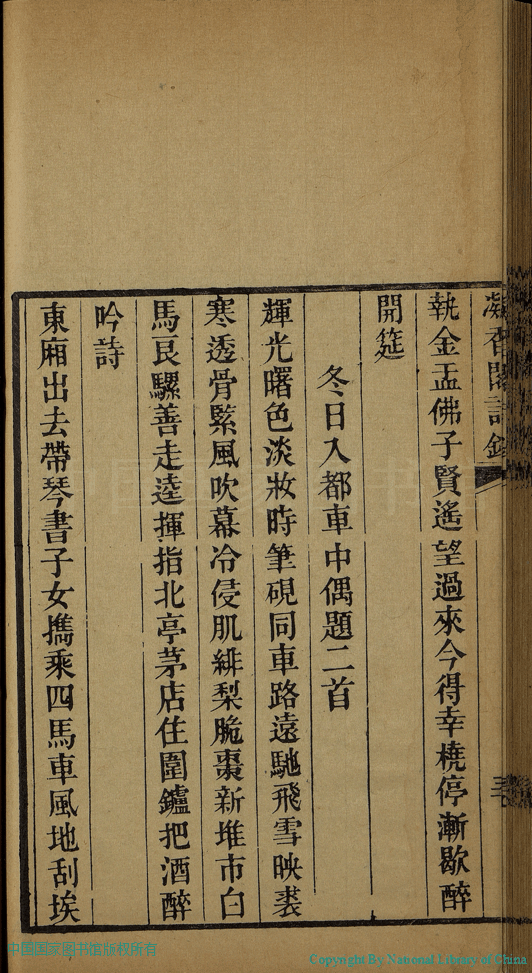 凝香閣詩鈔
執金盂佛子賢遙望過來今得幸橈停漸歇醉
開筵
冬日入都車中偶題二首
輝光曙色淡妝時筆硯同車路遠馳飛雪映裘
寒透骨緊風吹幕冷侵肌緋梨脆棗新堆市白
馬良騾善走逵揮指北亭茅店住圍鑪把酒醉
吟詩
東廂出去帶琴書子女擕乘四馬車風地刮埃
中国国家图书馆版权所有
Copyright By National Library of China